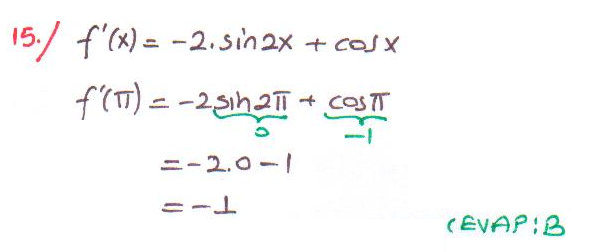 15./ f'(x) = -2.sin2x + cosx
f'(π) = -2sin2π + cosπ
0 -1
= -2.0 - 1
= -1
CEVAP: B